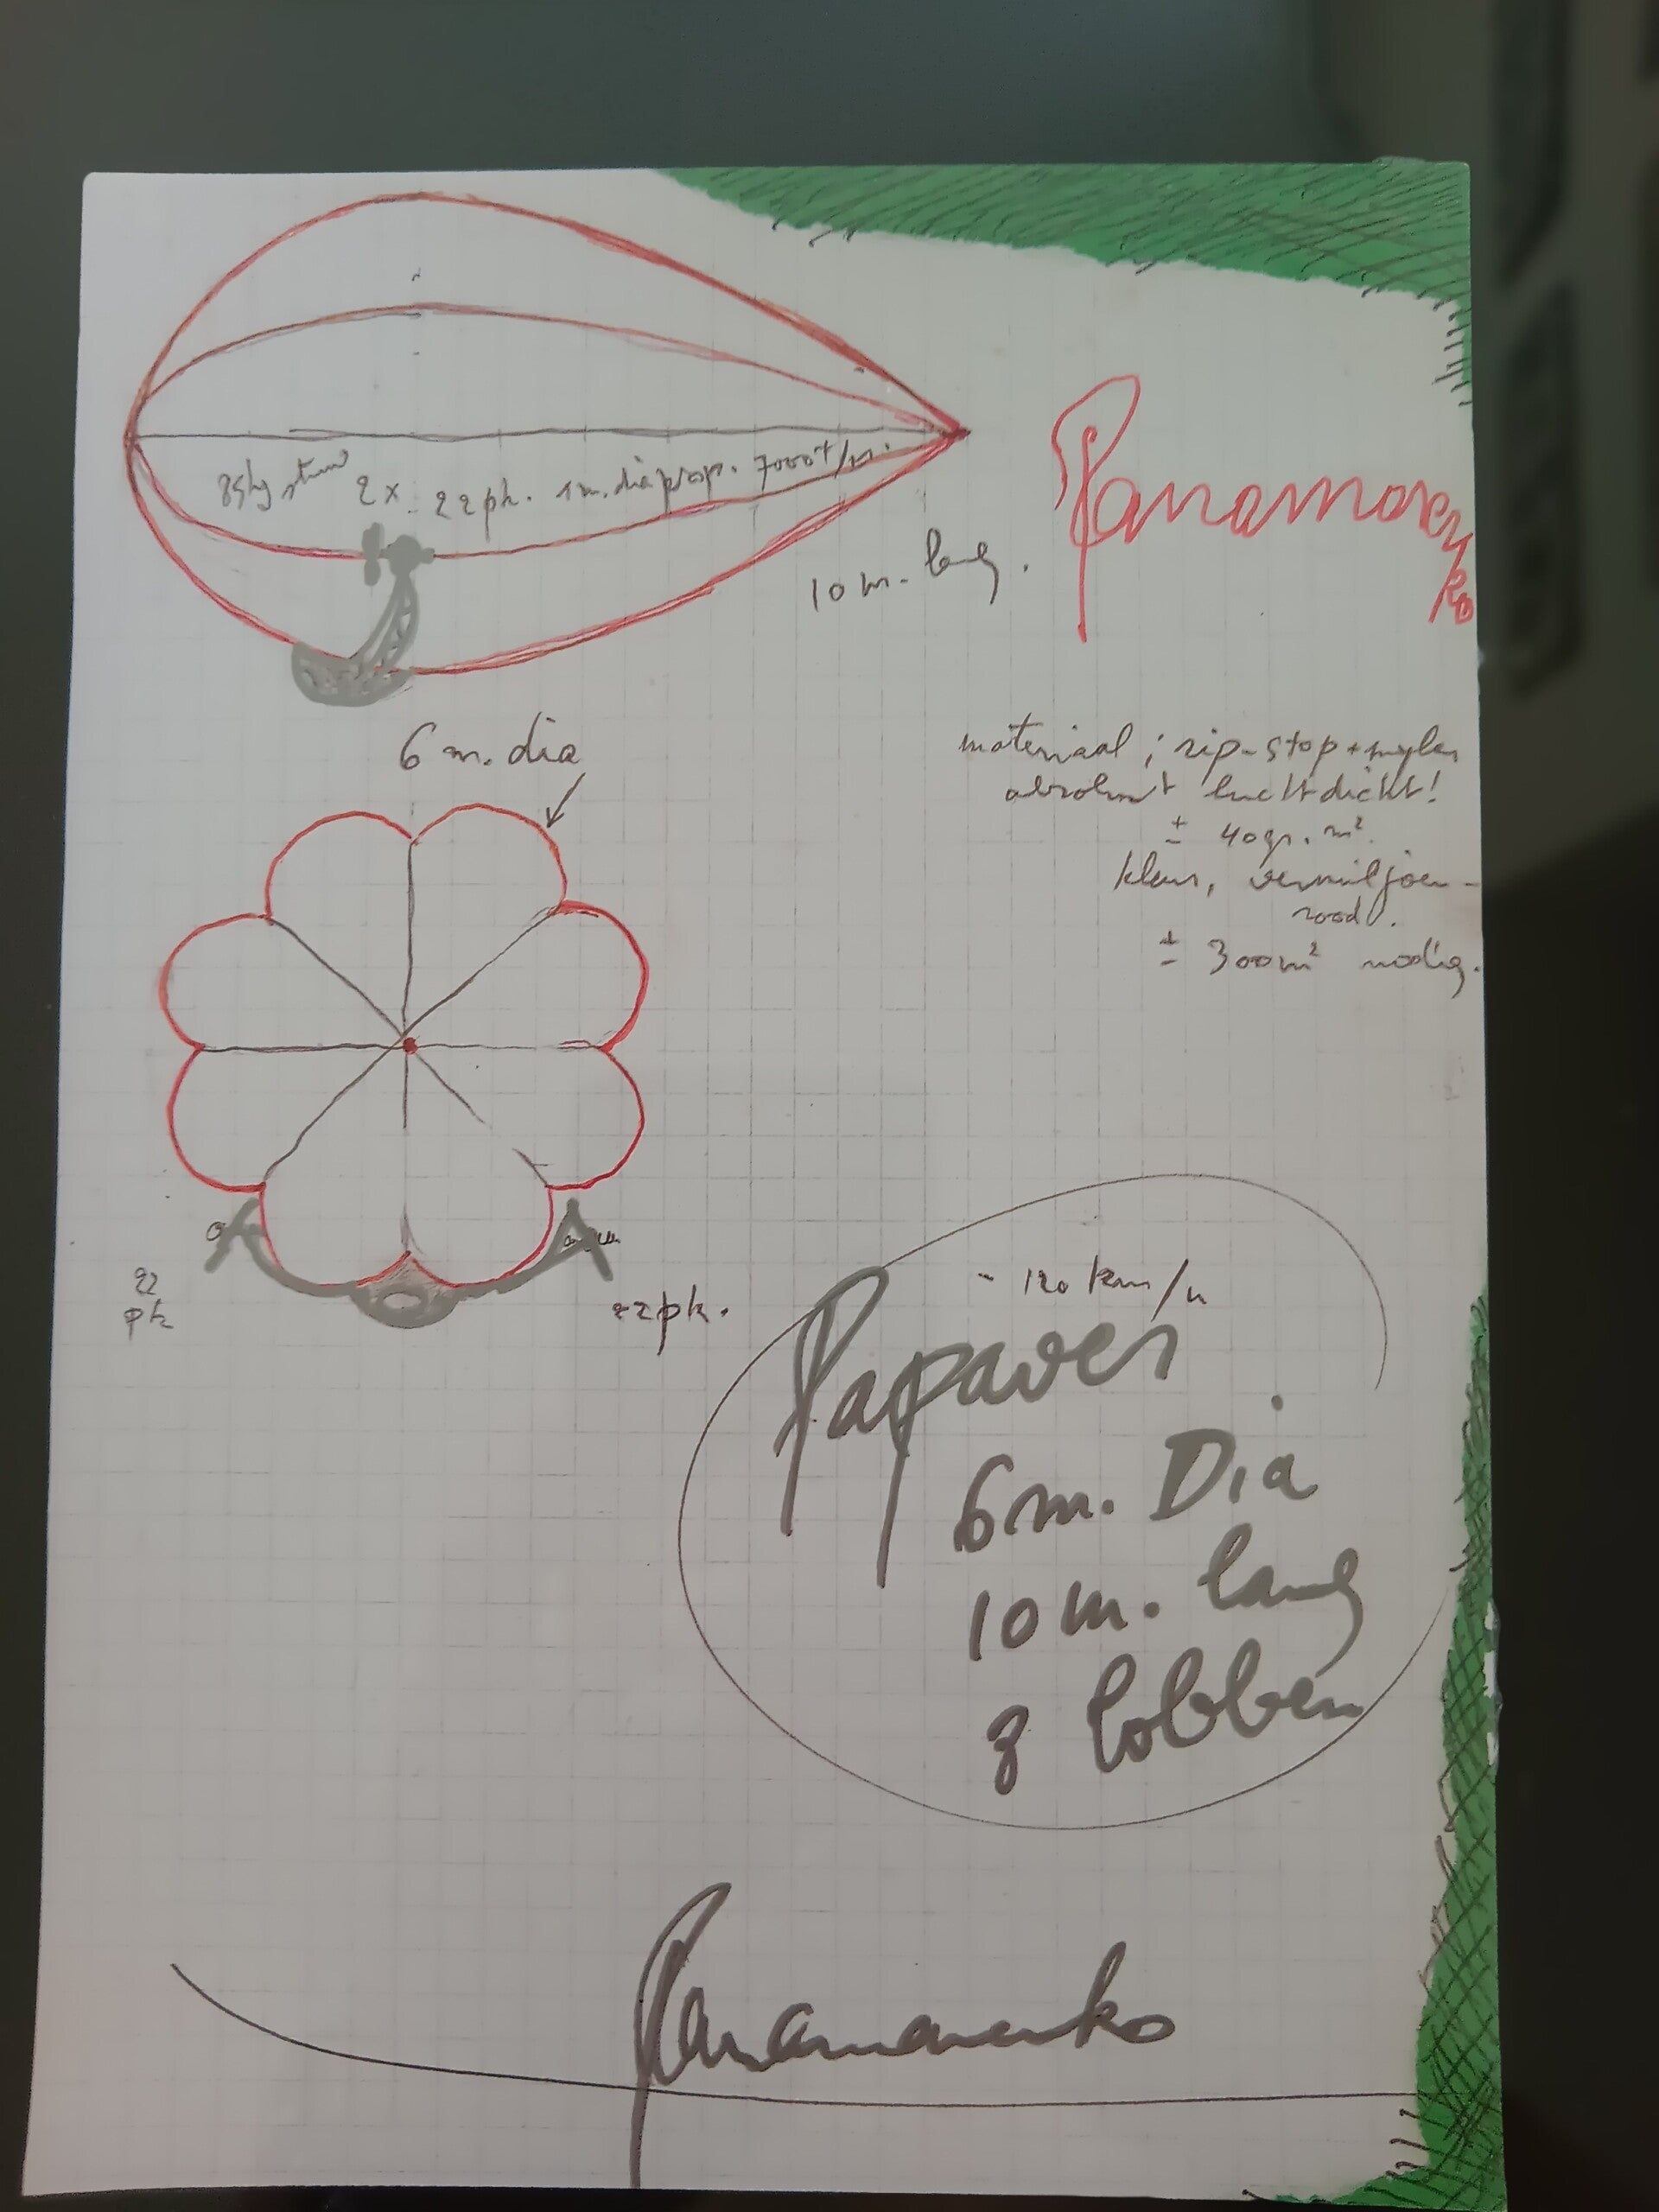 85kg stuw 2x 22pk. 1m. dia prop. 7000 t/m.
10 m. lang.
Panamarenko
6 m. dia
materiaal ; rip-stop + mylar
absoluut luchtdicht!
± 40gr. m²
kleur, vermiljoen-
rood.
± 300m² nodig.
22
pk
22pk.
- 120 km/u
Papaver
6m. Dia
10 m. lang
8 lobben
Panamarenko